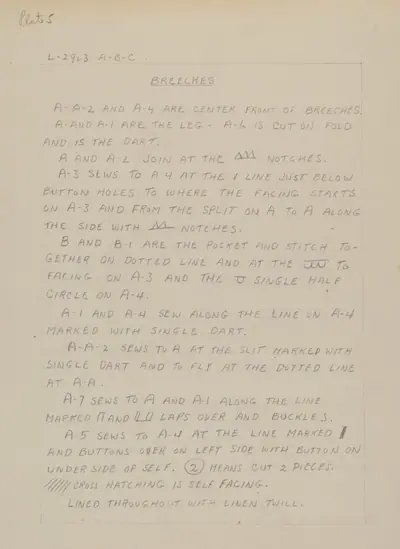 Plate 5
L-2923 A-B-C
BREECHES
A-A-2 AND A-4 ARE CENTER FRONT OF BREECHES.
A-AND A-1 ARE THE LEG - A-6 IS CUT ON FOLD
AND IS THE DART.
A AND A-2 JOIN AT THE NOTCHES.
A-3 SEWS TO A 4 AT THE 1 LINE JUST BELOW
BUTTON HOLES TO WHERE THE FACING STARTS
ON A-3 AND FROM THE SPLIT ON A TO A ALONG
THE SIDE WITH NOTCHES.
B AND B-1 ARE THE POCKET AND STITCH TO-
GETHER ON DOTTED LINE AND AT THE TO
FACING ON A-3 AND THE SINGLE HALF
CIRCLE ON A-4.
A-1 AND A-4 SEW ALONG THE LINE ON A-4
MARKED WITH SINGLE DART.
A-A-2 SEWS TO A AT THE SLIT MARKED WITH
SINGLE DART AND TO FLY AT THE DOTTED LINE
AT A-A.
A-7 SEWS TO A AND A-1 ALONG THE LINE
MARKED AND LAPS OVER AND BUCKLES.
A 5 SEWS TO A-4 AT THE LINE MARKED
AND BUTTONS OVER ON LEFT SIDE WITH BUTTON ON
UNDER SIDE OF SELF. (2) MEANS CUT 2 PIECES.
///// CROSS HATCHING IS SELF FACING.
LINED THROUGHOUT WITH LINEN TWILL.